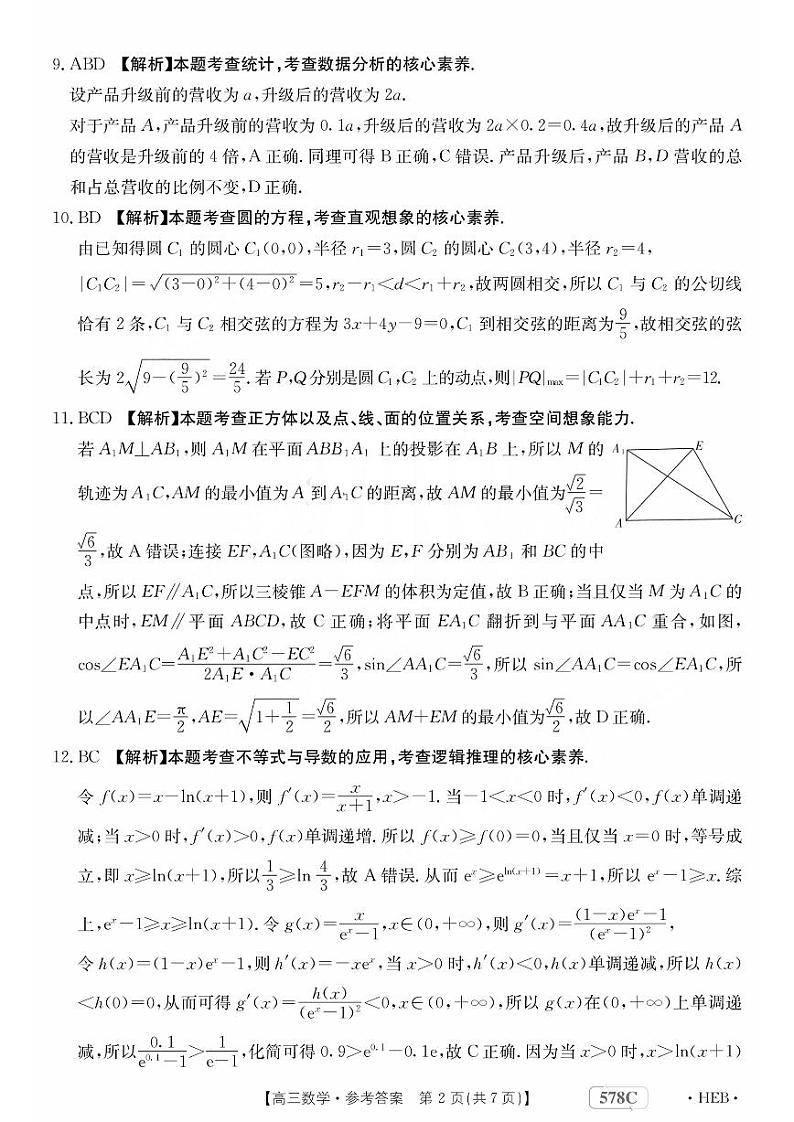 9. ABD 【解析】本题考查统计,考查数据分析的核心素养.
设产品升级前的营收为 a,升级后的营收为 2a.
对于产品 A,产品升级前的营收为 0.1a,升级后的营收为 2a×0.2=0.4a,故升级后的产品 A
的营收是升级前的 4 倍,A 正确. 同理可得 B 正确,C 错误. 产品升级后,产品 B,D 营收的总
和占总营收的比例不变,D 正确.
10. BD 【解析】本题考查圆的方程,考查直观想象的核心素养.
由已知得圆 C₁ 的圆心 C₁(0,0),半径 r₁=3,圆 C₂ 的圆心 C₂(3,4),半径 r₂=4,
|C₁C₂|=√((3-0)²+(4-0)²)=5,r₂-r₁<d<r₁+r₂,故两圆相交,所以 C₁ 与 C₂ 的公切线
恰有 2 条,C₁ 与 C₂ 相交弦的方程为 3x+4y-9=0,C₁ 到相交弦的距离为 9/5,故相交弦的弦
长为 2√(9-(9/5)²)=24/5. 若 P,Q 分别是圆 C₁,C₂ 上的动点,则|PQ|max=|C₁C₂|+r₁+r₂=12.
11. BCD 【解析】本题考查正方体以及点、线、面的位置关系,考查空间想象能力.
若 A₁M⊥AB₁,则 A₁M 在平面 ABB₁A₁ 上的投影在 A₁B 上,所以 M 的
轨迹为 A₁C,AM 的最小值为 A 到 A₁C 的距离,故 AM 的最小值为 √2/√3=
√6/3,故 A 错误;连接 EF,A₁C(图略),因为 E,F 分别为 AB₁ 和 BC 的中
A₁ E
A C
点,所以 EF∥A₁C,所以三棱锥 A-EFM 的体积为定值,故 B 正确;当且仅当 M 为 A₁C 的
中点时,EM∥平面 ABCD,故 C 正确;将平面 EA₁C 翻折到与平面 AA₁C 重合,如图,
cos∠EA₁C=(A₁E²+A₁C²-EC²)/(2A₁E·A₁C)=√6/3,sin∠AA₁C=√6/3,所以 sin∠AA₁C=cos∠EA₁C,所
以∠AA₁E=π/2,AE=√(1+1/2)=√6/2,所以 AM+EM 的最小值为 √6/2,故 D 正确.
12. BC 【解析】本题考查不等式与导数的应用,考查逻辑推理的核心素养.
令 f(x)=x-ln(x+1),则 f′(x)=x/(x+1),x>-1. 当-1<x<0 时,f′(x)<0,f(x)单调递
减;当 x>0 时,f′(x)>0,f(x)单调递增. 所以 f(x)≥f(0)=0,当且仅当 x=0 时,等号成
立,即 x≥ln(x+1),所以 1/3≥ln 4/3,故 A 错误. 从而 eˣ≥e^(ln(x+1))=x+1,所以 eˣ-1≥x. 综
上,eˣ-1≥x≥ln(x+1). 令 g(x)=x/(eˣ-1),x∈(0,+∞),则 g′(x)=((1-x)eˣ-1)/(eˣ-1)²,
令 h(x)=(1-x)eˣ-1,则 h′(x)=-xeˣ,当 x>0 时,h′(x)<0,h(x)单调递减,所以 h(x)
<h(0)=0,从而可得 g′(x)=h(x)/(eˣ-1)²<0,x∈(0,+∞),所以 g(x)在(0,+∞)上单调递
减,所以 0.1/(e^0.1-1)>1/(e-1),化简可得 0.9>e^0.1-0.1e,故 C 正确. 因为当 x>0 时,x>ln(x+1)
【高三数学·参考答案 第 2 页(共 7 页)】 578C ·HEB·